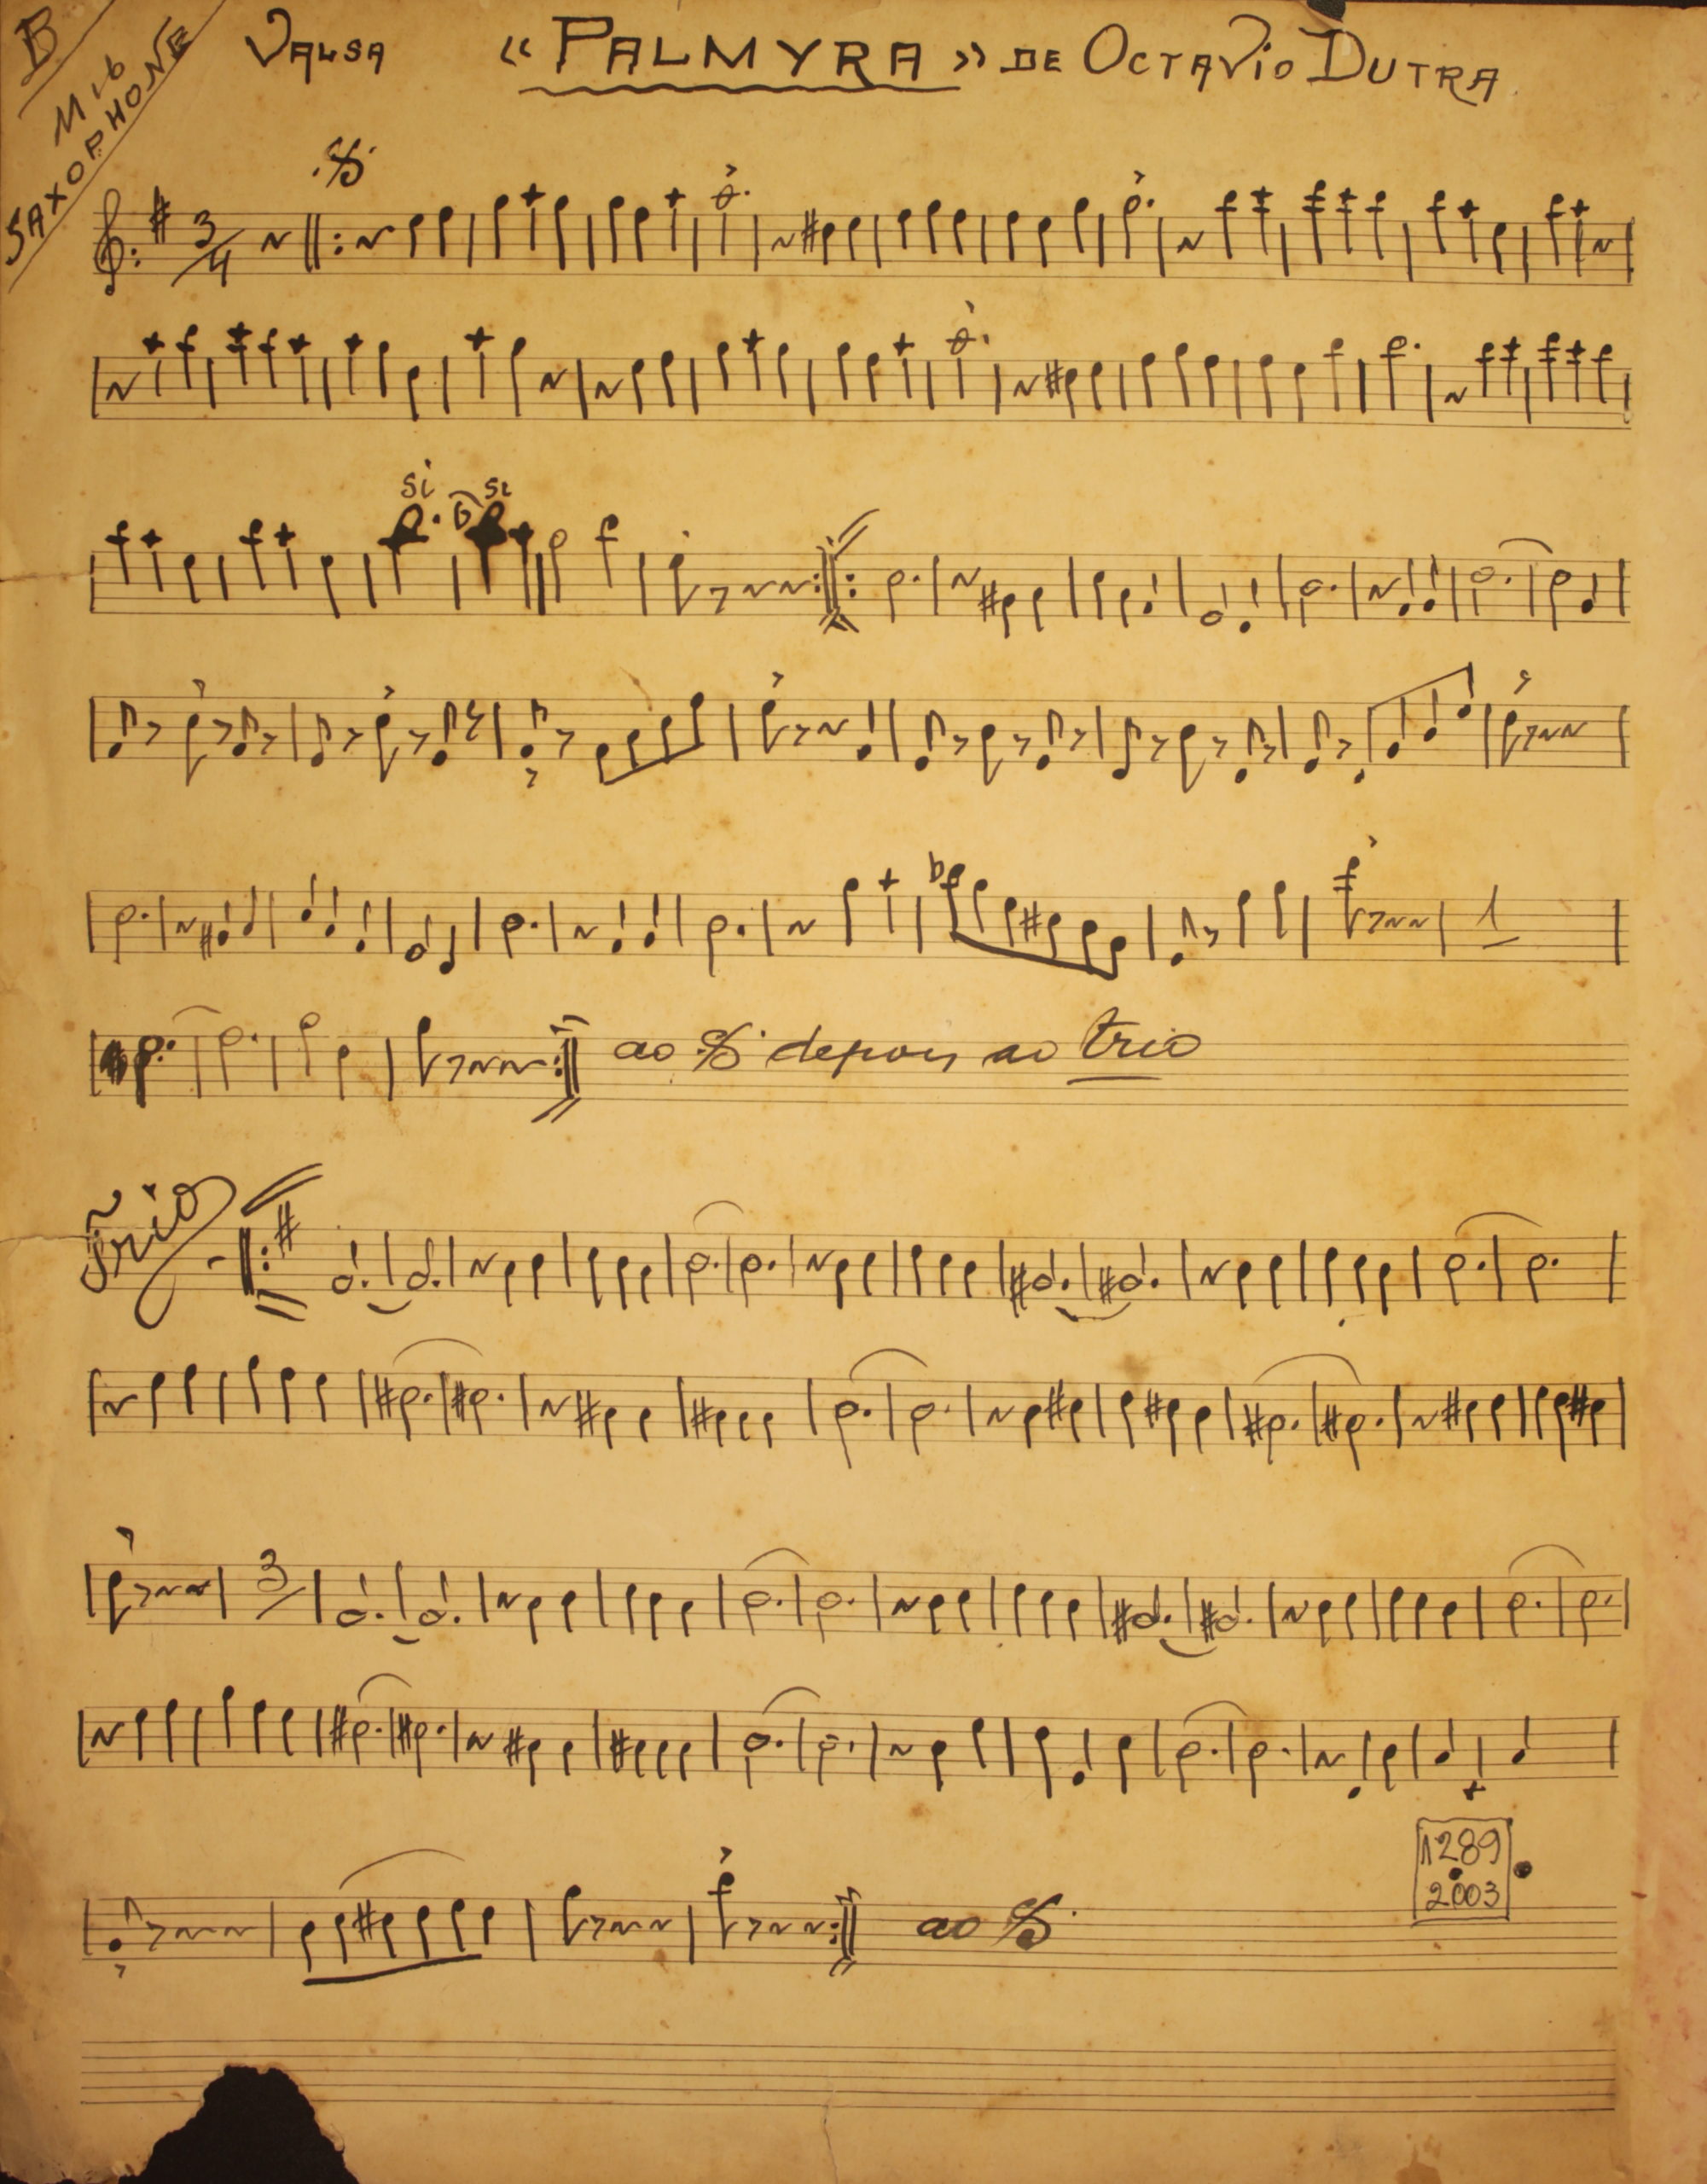 B
Mib
SAXOPHONE
VALSA « PALMYRA » DE OCTAVIO DUTRA
3/4
si si
6
1
ao depois ao trio
Trio
3
1289
2003
ao